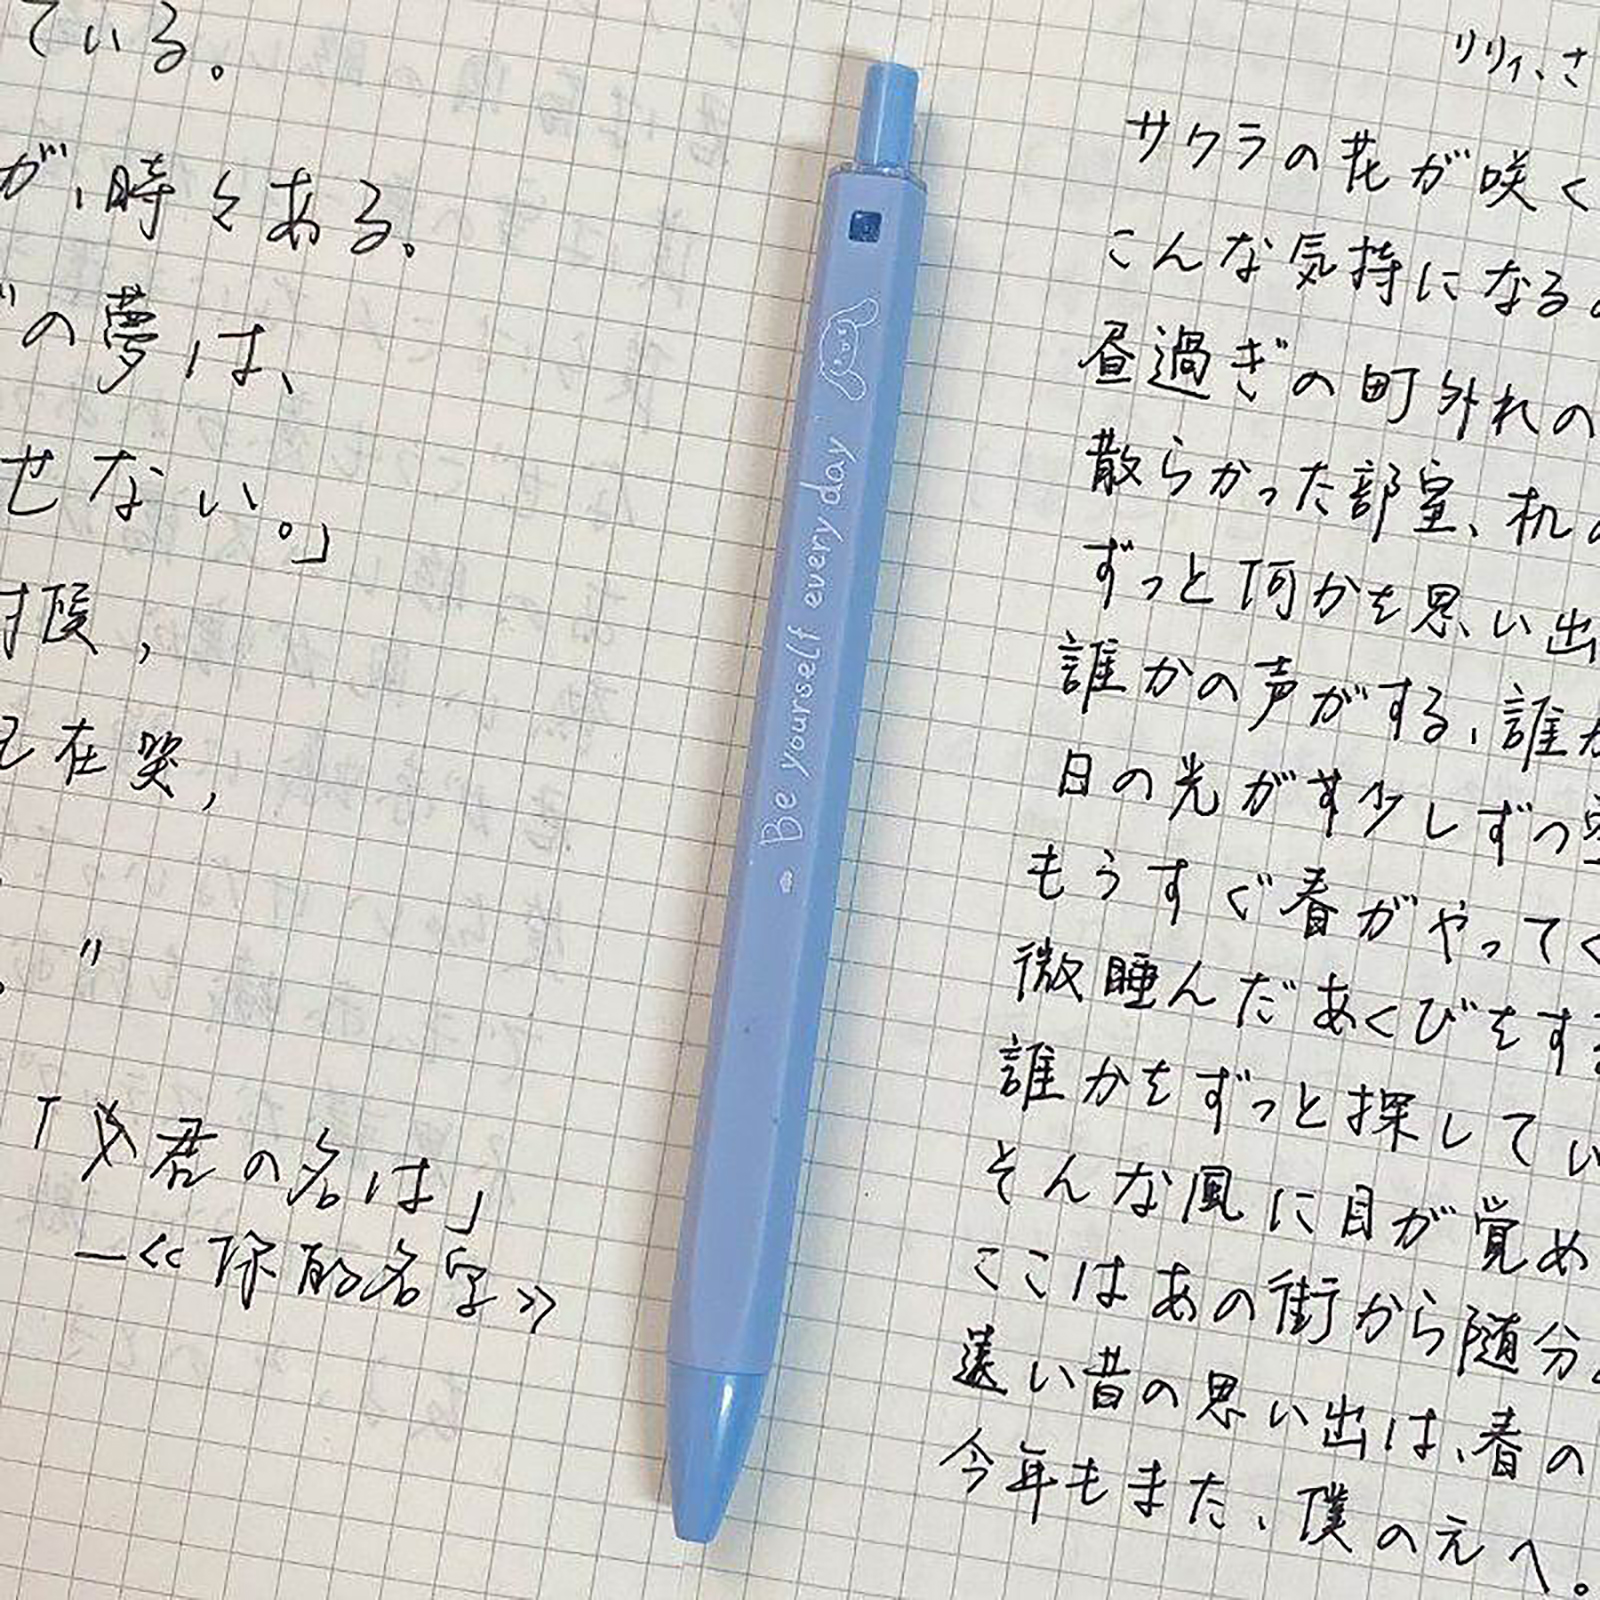 ている。
が、時々ある。
の夢は、
せない。」
候，
在哭，
”
「君の名は」
—《你的名字》
Be yourself every day
リリィ、さ
サクラの花が咲く
こんな気持になる。
昼過ぎの町外れの
散らかった部室、机の
ずっと何かを思い出
誰かの声がする、誰か
日の光が少しずつ
もうすぐ春がやってく
微睡んだあくびをする
誰かをずっと探してい
そんな風に目が覚め
ここはあの街から随分
遠い昔の思い出は、春の
今年もまた、僕のえへ。